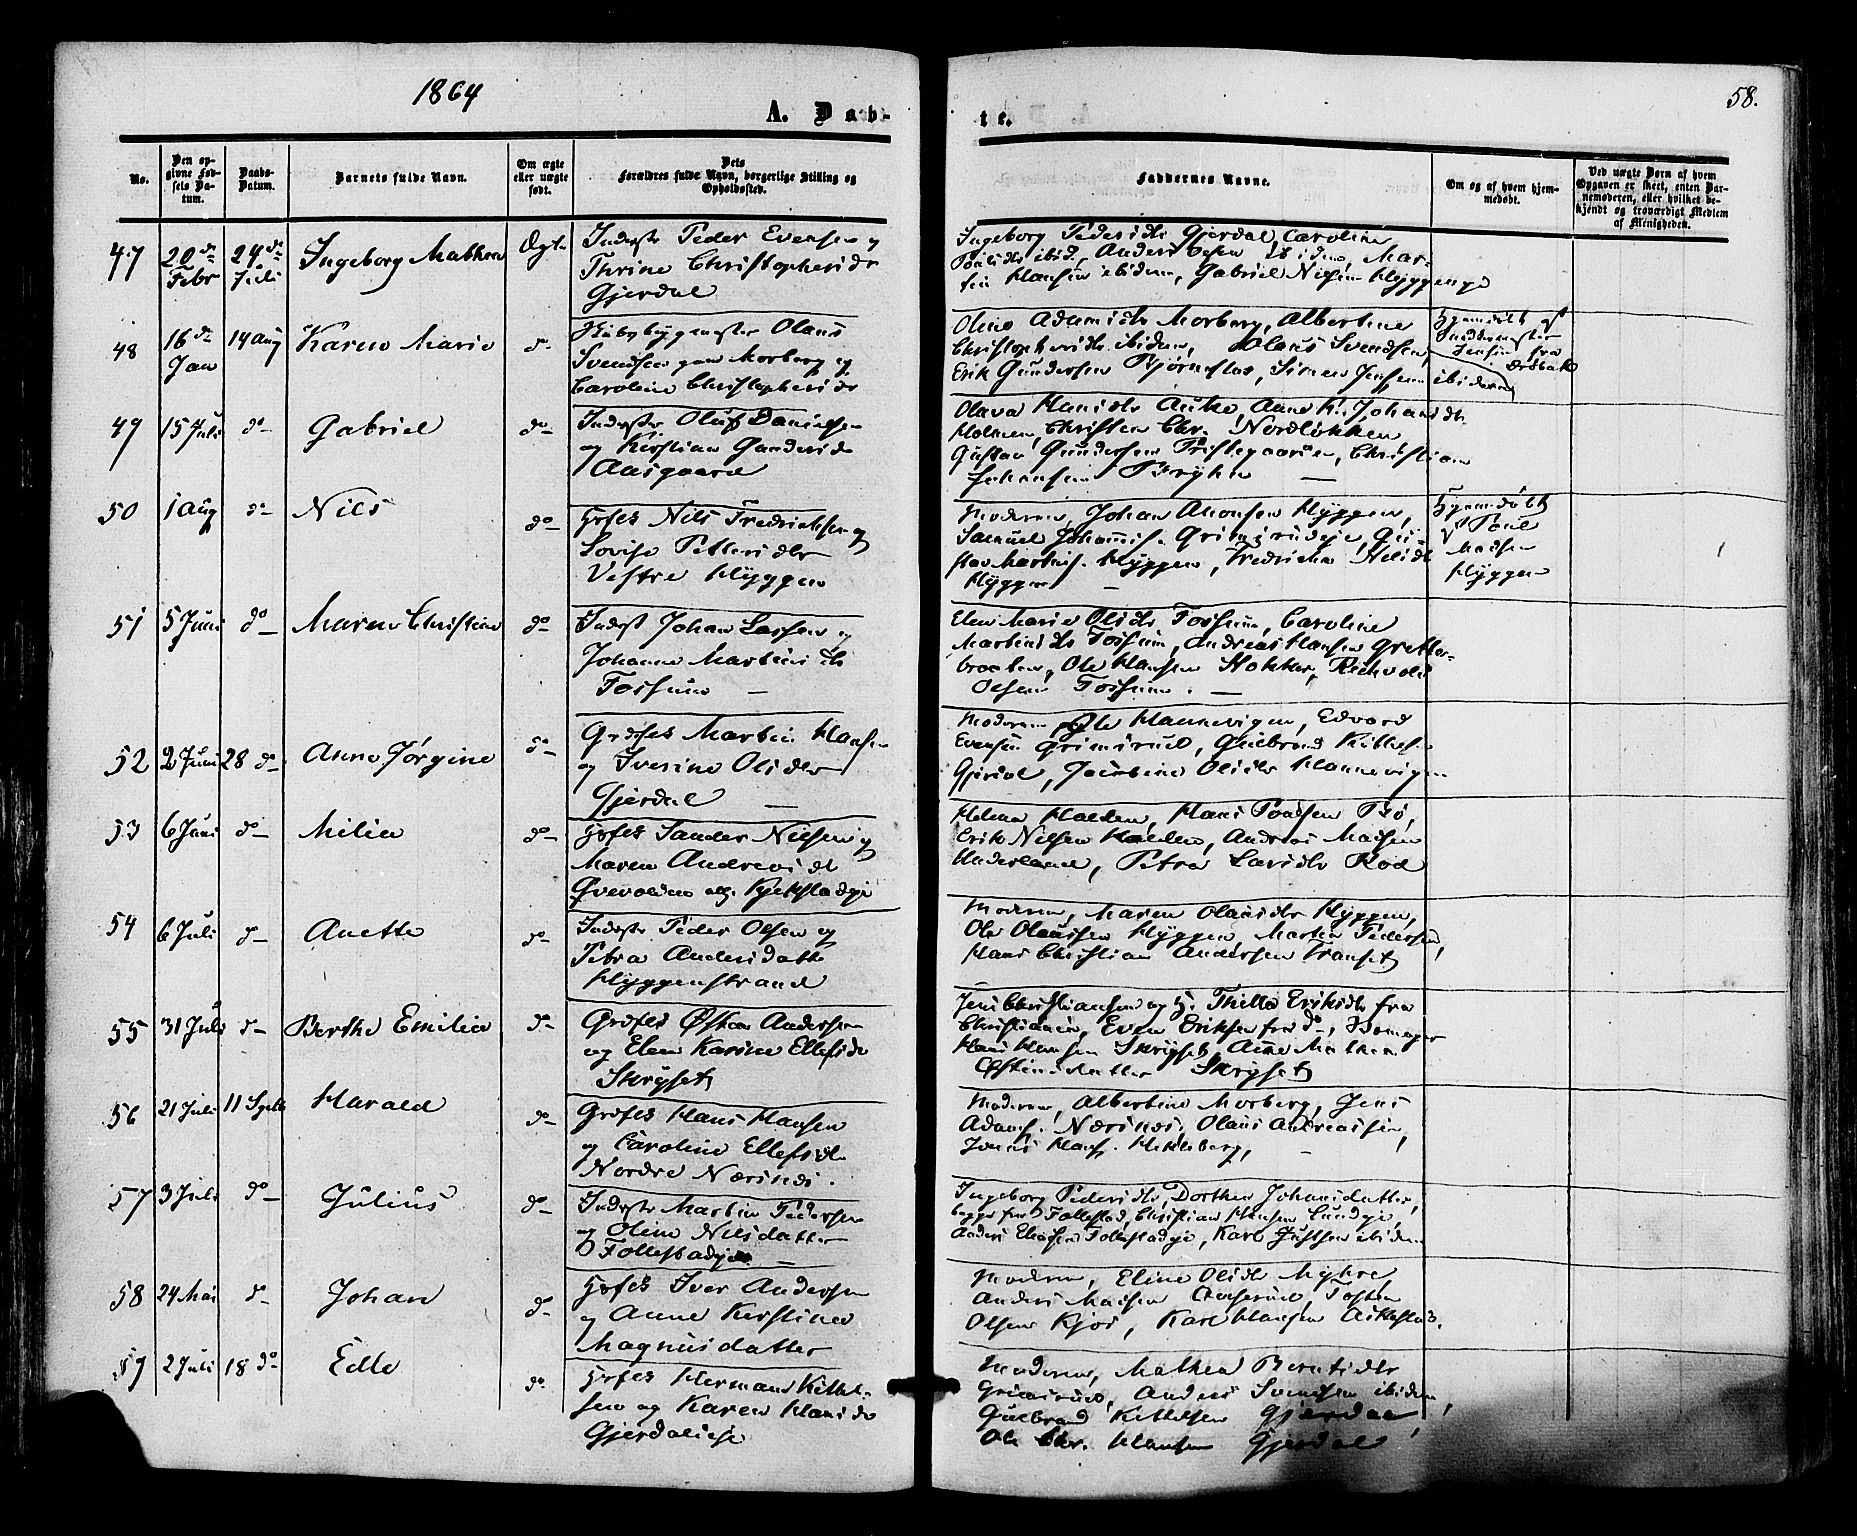 1864
58.
A. Dab-
te.
No.
Den op-
givne Fød-
sels Da-
tum.
Daabs-
Datum.
Barnets fulde Navn.
Om ægte
eller uægte
født.
Dets
Forældres fulde Navn, borgerlige Stilling og
Opholdssted.
Faddernes Navne.
Om og af hvem hjem-
medøbt.
Ved uægte Børn af hvem
Opgaven er skeet, enten Bar-
nemoderen, eller hvilket be-
kjendt og troværdigt Medlem
af Menigheden.
47 20de Febr 24de Juli Ingeborg Mathea Ægte
Inderste Peder Evensen og
Thrine Christophersdr
Gjerdal
Ingeborg Pedersdr Gjerdal, Caroline
ibid, Anders Olsen ibidem, Mar-
tin Hansen ibidem, Gabriel Nielsen Hyggen
48 16de Jan 14 Aug Karen Marie do
Olaus
Svendsen Morberg og
Caroline Christophersdr
Oline Adamsdr Morberg, Albertine
Christophersdr ibidem, Olaus Svendsen,
Erik Gundersen Bjørnstad, Simen Jensen ibidem
Hjemdøbt af
Jensen fra
Drøbak
49 15 Juli do Gabriel do
Inderste Oluf Danielsen
og Kirstian Gundersdr
Aasgaard
Olava Hansdr Auke, Anne K. Johansdr
Holmen, Christen Chr. Nordløkken
Gustav Gundersen Prestegaarden, Christian
Johansen
50 1 Aug do Nils do
Hosfs Nils Fredriksen og
Lovise Pettersdr
Vestre Hyggen
Moderen, Johan Hyggen,
Samuel Johannes. Grimsrudeje, Gu-
stav Martins. Hyggen, Fredrikke Nilsdr
Hyggen
Hjemdøbt
af Poul
Madsen
Hyggen
51 5 Juni do Maren Christine do
Inderst Johan Larsen og
Johanne Martinsdr
Fossum
Elen Marie Olsdr Fossum, Caroline
Martinsdr Fossum, Andreas Hansen Gretter-
braaten, Ole Hansen Stokker,
Olsen Fossum.
52 2 Juni 28 do Anne Jørgine do
Grdfs Martin Hansen
og Iverine Olsdr
Gjerdal
Moderen, Ole Hannevigen, Edvard
Evensen Grimsrud, Gulbrand Kittels.
Gjerdal, Jacobine Olsdr Hannevigen
53 6 Juni do Milia do
Hosfs Sander Nilsen og
Maren Andreasdr
Øvevolden alz. Kjekstadeje
Helena Holden, Hans Poulsen Bø,
Erik Nilsen Holden, Andreas Madsen
Underland, Petra Larsdr Rød
54 6 Juli do Anette do
Inderste Peder Olsen og
Petra Andersdatter
Hyggenstrand
Moderen, Maren Olausdr Hyggen,
Ole Olaussen Hyggen, Martha Pedersen,
Hans Christian Andersen Transet
55 31 Juli do Berthe Emilie do
Grdfs Østen Andersen
og Elen Karine Ellefsdr
Skryset
Jens Christiansen og H. Thilla Eriksdr fra
Christiania, Even Eriksen fra do,
Hans Hansen Skryset, Anne Mathea
Østensdatter Skryset
56 21 Juli 11 Septb Harald do
Grdfs Hans Hansen
og Caroline Ellefsdr
Nordre Nærsnes.
Moderen, Albertine Morberg, Jens
Adams. Nærsnes, Olaus Andreassen,
Hans. Hekleberg,
57 3 Juli do Julius do
Inderste Martin Pedersen
og Oline Nilsdatter
Follestadeje
Ingeborg Pedersdr, Dorthea Johansdatter,
begge fra Follestad, Christian Hansen Lundeje,
Anders Eliasen Follestadeje, Karl ibidem
58 24 Mai do Johan do
Hosfs Iver Andersen
og Anne Kirstine
Magnusdatter
Moderen, Eline Olsdr Myhre,
Anders Madsen Torsten
Olsen Kjos, Karl Hansen Aukestad.
59 2 Juli 18 do Edle do
Hosfs Herman Kittel-
sen og Karen Hansdr
Gjerdaleje
Moderen, Mathea Berntsdr
Grimsrud, Anders Svendsen ibidem,
Gulbrand Kittelsen Gjerdal,
Ole Chr. Hansen Gjerdal